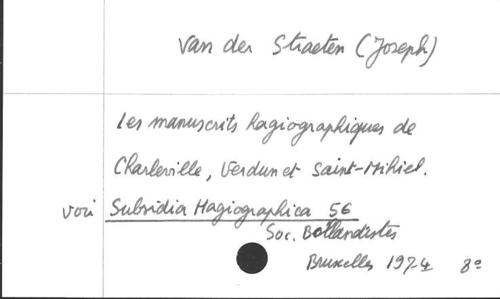 Van der Straeten (Joseph)
Les manuscrits hagiographiques de
Charleville, Verdun et Saint-Mihiel.
voir Subsidia Hagiographica 56
Soc. Bollandistes
Bruxelles 1974 8°